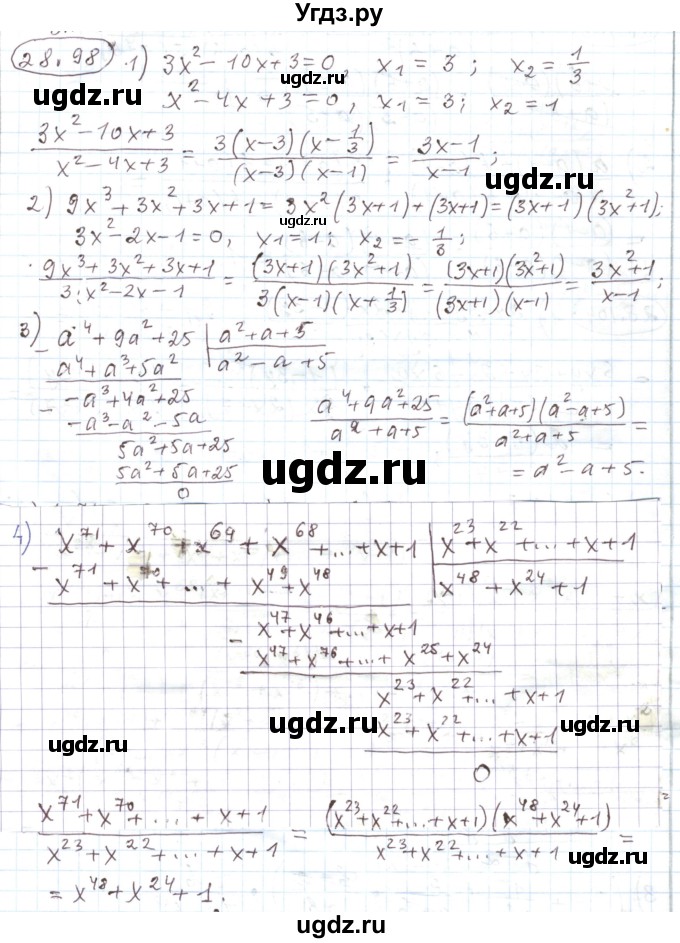 Угдз.ру
28.98 1) 3x² − 10x + 3 = 0, x₁ = 3; x₂ = 1/3
ugdz.ru ugdz.ru
x² − 4x + 3 = 0, x₁ = 3; x₂ = 1
(3x² − 10x + 3)/(x² − 4x + 3) = (3(x−3)(x−1/3))/((x−3)(x−1)) = (3x−1)/(x−1);
2) 9x³ + 3x² + 3x + 1 = 3x²(3x+1) + (3x+1) = (3x+1)(3x²+1);
ugdz.ru
3x² − 2x − 1 = 0, x₁ = 1; x₂ = −1/3;
(9x³ + 3x² + 3x + 1)/(3x² − 2x − 1) = ((3x+1)(3x²+1))/(3(x−1)(x+1/3)) = ((3x+1)(3x²+1))/((3x+1)(x−1)) = (3x²+1)/(x−1);
3) − a⁴ + 9a² + 25 | a² + a + 5
a⁴ + a³ + 5a² | a² − a + 5
− −a³ + 4a² + 25
−a³ − a² − 5a
5a² + 5a + 25
5a² + 5a + 25
0
(a⁴ + 9a² + 25)/(a² + a + 5) = ((a²+a+5)(a²−a+5))/(a² + a + 5) =
= a² − a + 5.
ugdz.ru ugdz.ru
4) − x⁷¹ + x⁷⁰ + x⁶⁹ + x⁶⁸ + ... + x + 1 | x²³ + x²² + ... + x + 1
x⁷¹ + x⁷⁰ + ... + x⁴⁹ + x⁴⁸ | x⁴⁸ + x²⁴ + 1
− x⁴⁷ + x⁴⁶ + ... + x + 1
x⁴⁷ + x⁷⁶ + ... + x²⁵ + x²⁴
x²³ + x²² + ... + x + 1
x²³ + x²² + ... + x + 1
0
ugdz.ru ugdz.ru ugdz.ru
(x⁷¹ + x⁷⁰ + ... + x + 1)/(x²³ + x²² + ... + x + 1) = ((x²³ + x²² + ... + x + 1)(x⁴⁸ + x²⁴ + 1))/(x²³ + x²² + ... + x + 1) =
ugdz.ru
= x⁴⁸ + x²⁴ + 1.
ugdz.ru